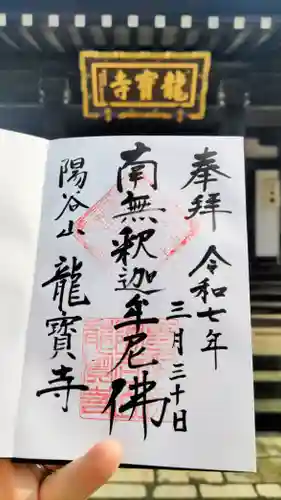 龍寶寺
奉拝
令和七年
三月三十日
南無釈迦牟尼佛
陽谷山
龍寶寺